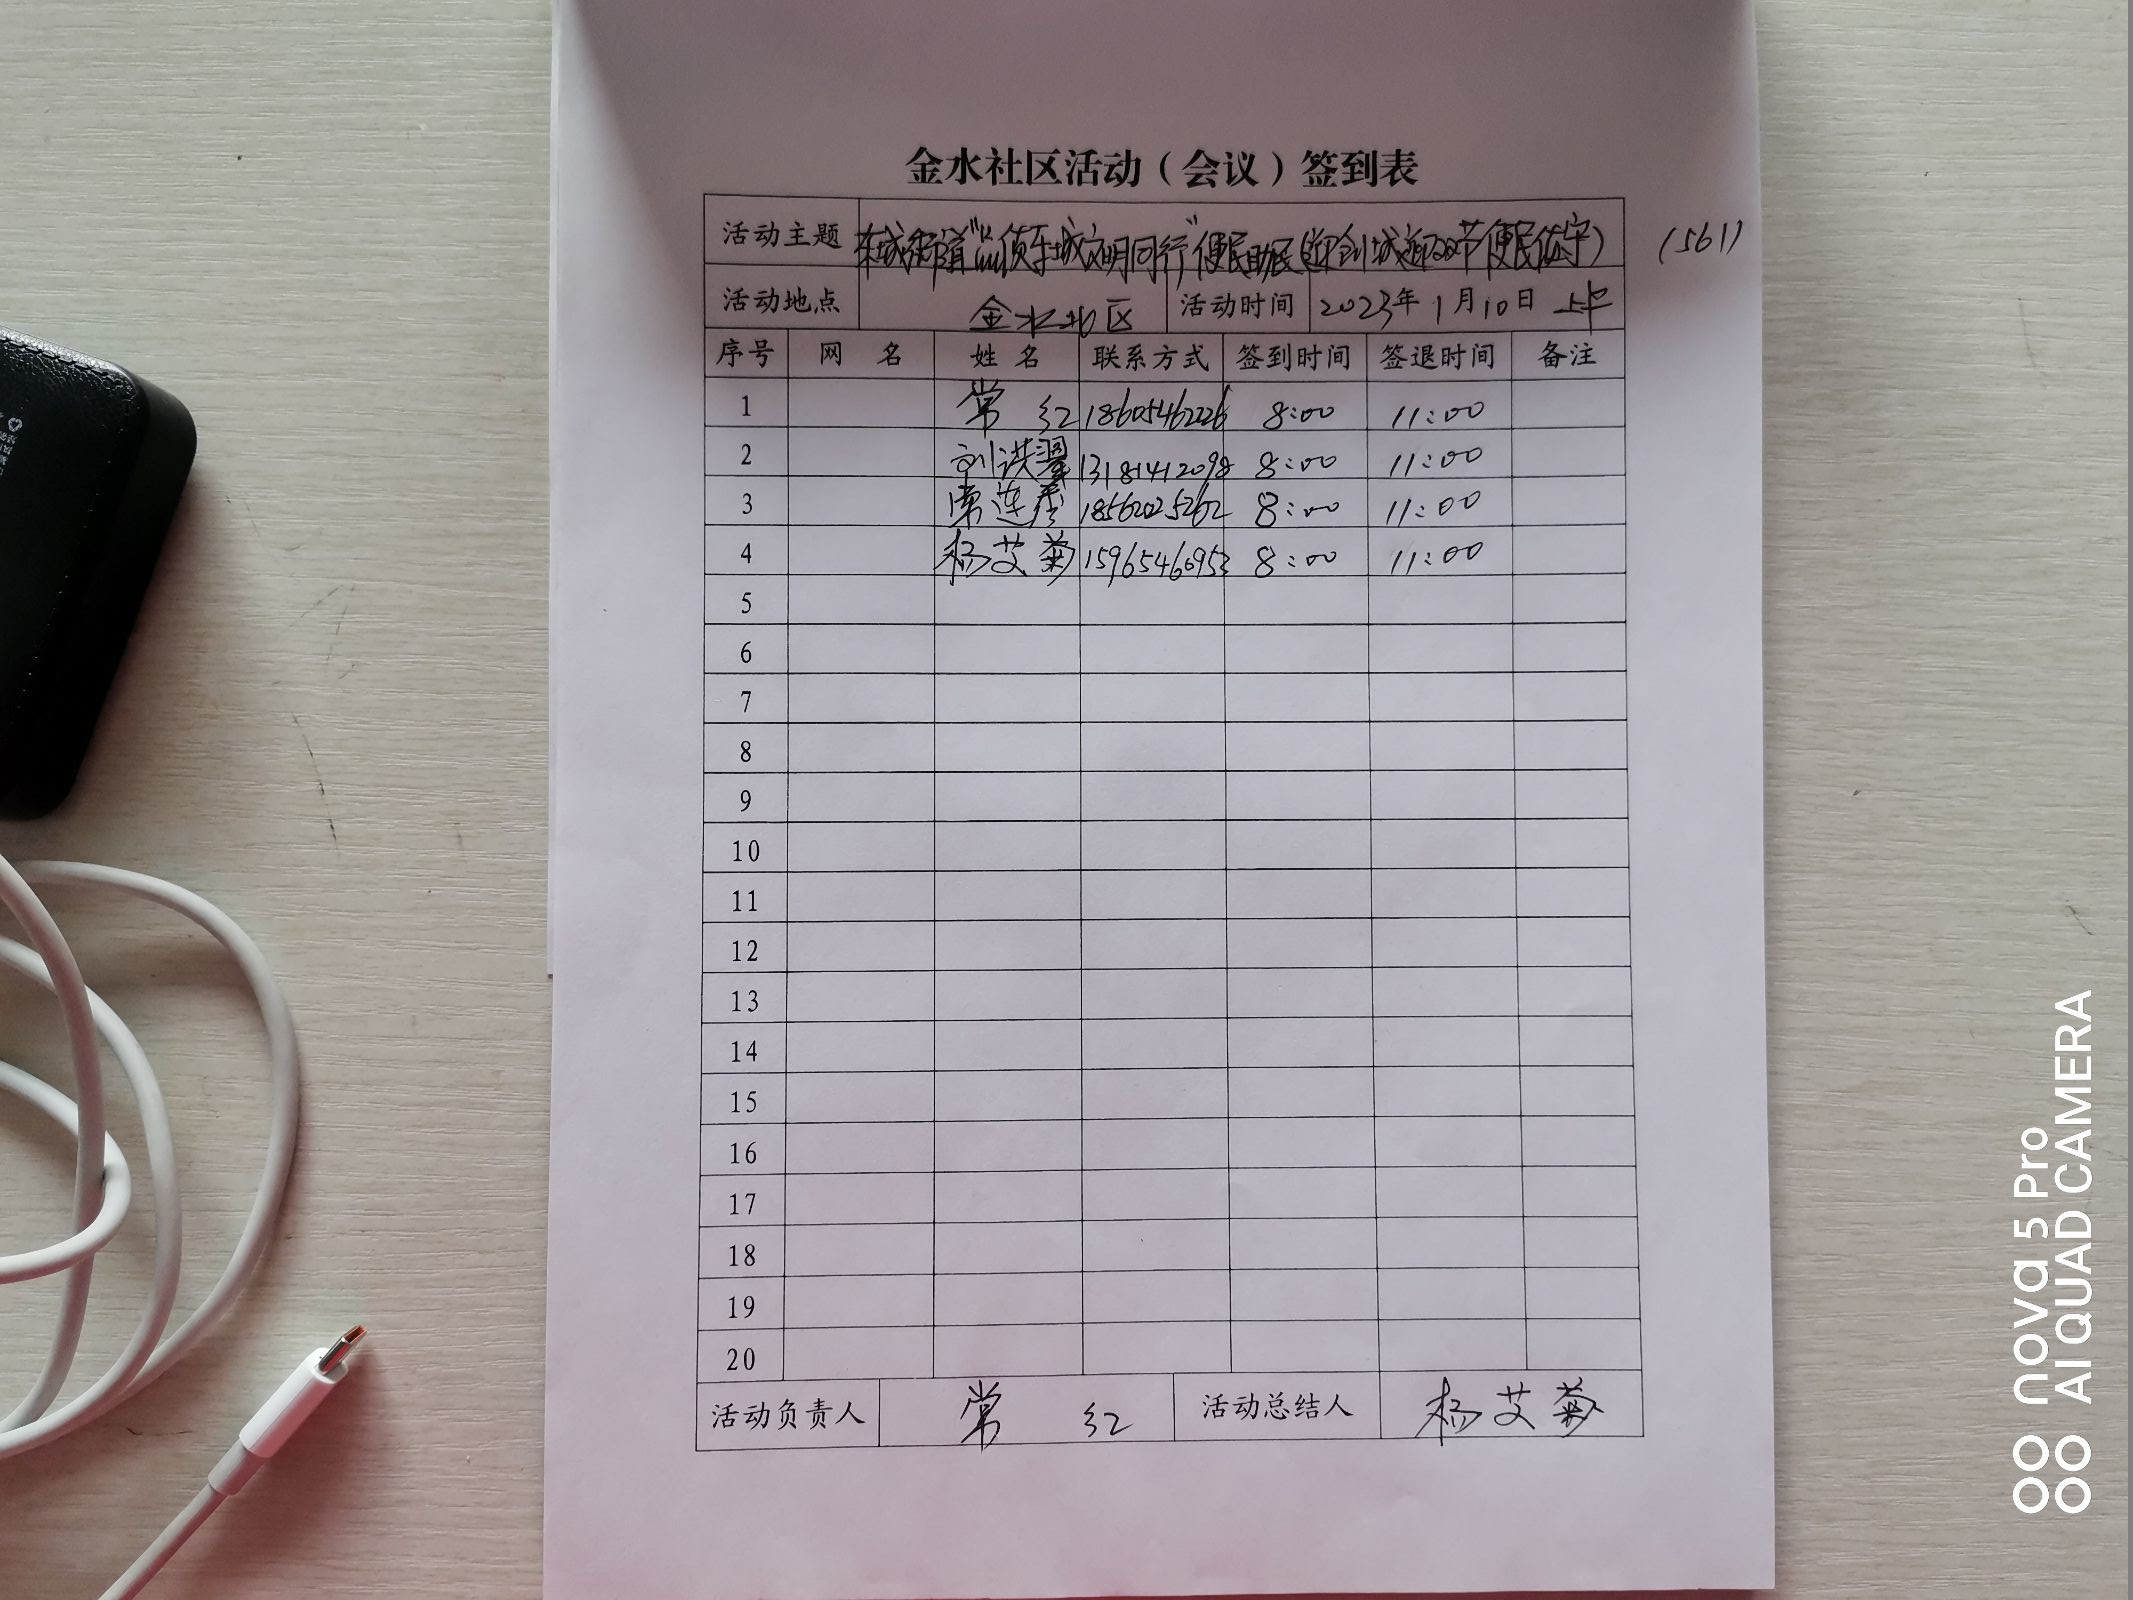 金水社区活动（会议）签到表
活动主题 东城街道"心愿东城文明同行"便民助民(迎创城迎双节便民值守) (561)
活动地点 金水社区 活动时间 2023年1月10日 上午
序号 网 名 姓 名 联系方式 签到时间 签退时间 备注
1 常 红 18605462226 8:00 11:00
2 刘洪翠 13181412098 8:00 11:00
3 常连彦 18562025262 8:00 11:00
4 杨艾菊 15965466953 8:00 11:00
5
6
7
8
9
10
11
12
13
14
15
16
17
18
19
20
活动负责人 常 红 活动总结人 杨艾菊
nova 5 Pro
AI QUAD CAMERA